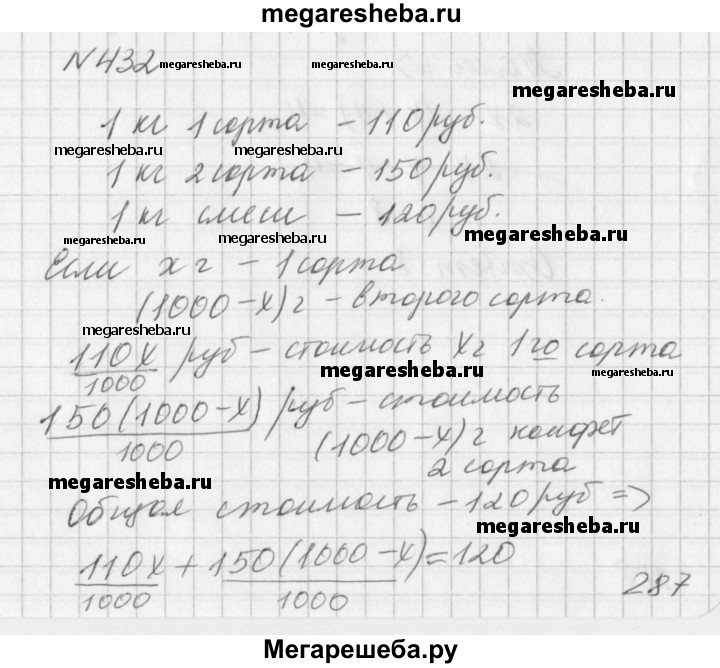 megaresheba.ru
N 432 megaresheba.ru
megaresheba.ru
1 кг 1 сорта – 110 руб.
megaresheba.ru megaresheba.ru
1 кг 2 сорта – 150 руб.
1 кг смеси – 120 руб.
megaresheba.ru megaresheba.ru megaresheba.ru
Если x г – 1 сорта
(1000 – x) г – второго сорта.
megaresheba.ru
110x/1000 руб – стоимость x г 1го сорта
megaresheba.ru megaresheba.ru
150(1000 – x)/1000 руб – стоимость
(1000 – x) г конфет
2 сорта
megaresheba.ru
Общая стоимость – 120 руб =>
megaresheba.ru
110x/1000 + 150(1000 – x)/1000 = 120
287
Мегарешеба.ру